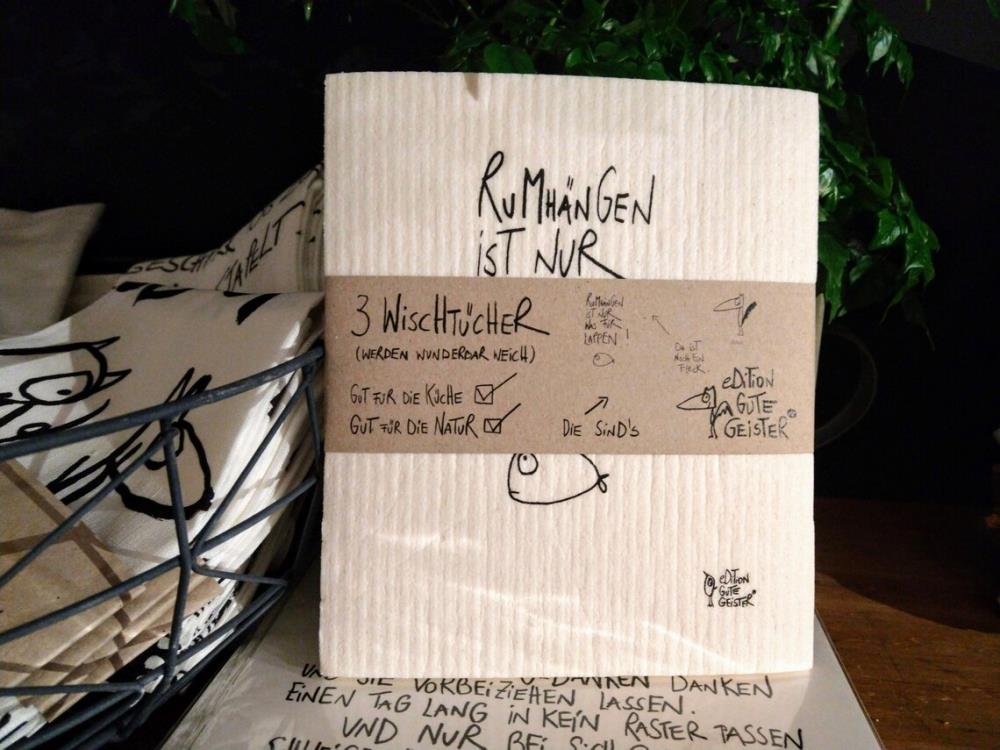 RUMHÄNGEN
iST NUR
3 WiSCHTÜCHER
(WERDEN WUNDERBAR WEICH)
GUT FÜR DIE KÜCHE
GUT FÜR DIE NATUR
RUMHÄNGEN
IST NUR
WAS FÜR
LAPPEN!
DA IST
NOCH EN
FLECK.
DIE SiND'S
eDiTiON
GUTE
GEiSTER
eDiTiON
GUTE
GEiSTER
VORBEiZiEHEN DANKEN
EiNEN TAG LANG iN KEiN RASTER PASSEN
UND NUR BEi